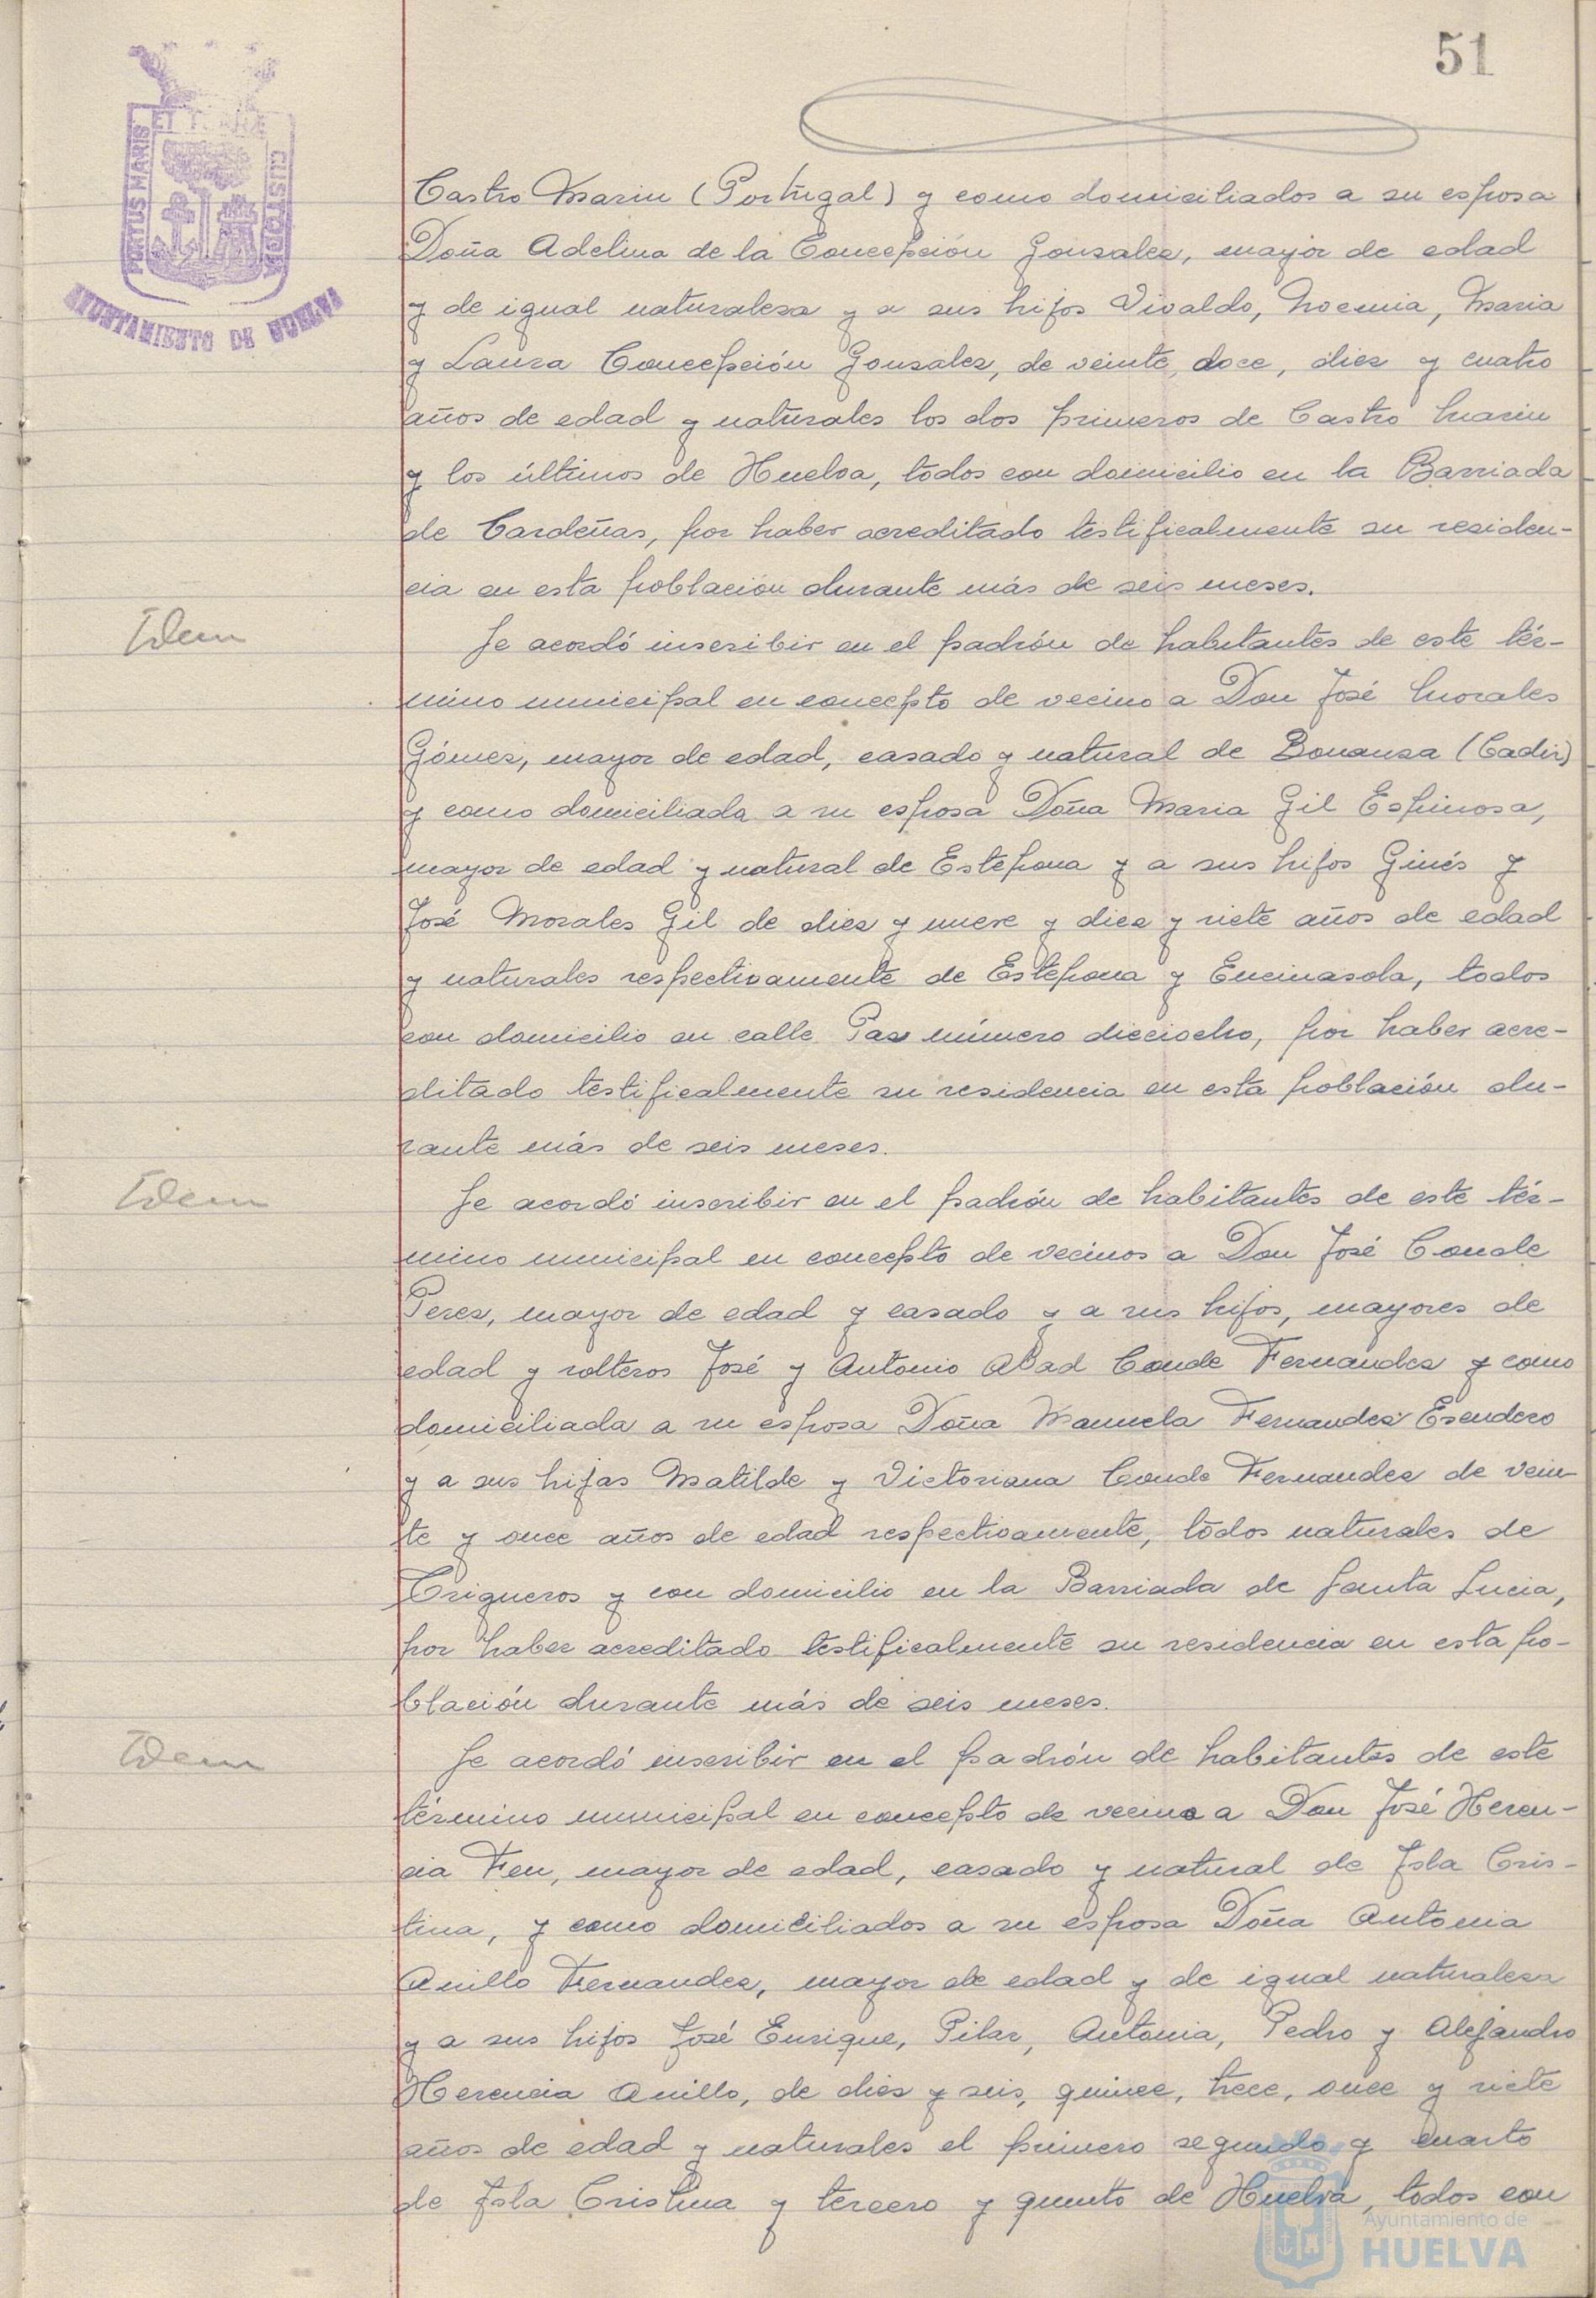 51
PORTUS MARIS
ET T
CUSTODIA
AYUNTAMIENTO DE HUELVA
Castro Marin (Portugal) y como domiciliados a su esposa
Doña Adelina de la Concepción Gonsales, mayor de edad
y de igual naturalesa y a sus hijos Vivaldo, Noemia, Maria
y Laura Concepción Gonsales, de veinte, doce, dies y cuatro
años de edad y naturales los dos primeros de Castro Marin
y los últimos de Huelva, todos con domicilio en la Barriada
de Cardeñas, por haber acreditado testificalmente su residen-
cia en esta población durante más de seis meses.
Idem
Se acordó inscribir en el padrón de habitantes de este tér-
mino municipal en concepto de vecino a Don José Morales
Gómes, mayor de edad, casado y natural de Bonansa (Cadis)
y como domiciliada a su esposa Doña Maria Gil Espinosa,
mayor de edad y natural de Estepona y a sus hijos Ginés y
José Morales Gil de dies y nueve y dies y siete años de edad
y naturales respectivamente de Estepona y Encinasola, todos
con domicilio en calle Pas número dieciocho, por haber acre-
ditado testificalmente su residencia en esta población du-
rante más de seis meses.
Idem
Se acordó inscribir en el padrón de habitantes de este tér-
mino municipal en concepto de vecinos a Don José Conde
Peres, mayor de edad y casado y a sus hijos, mayores de
edad y solteros José y Antonio Abad Conde Fernandes y como
domiciliada a su esposa Doña Manuela Fernandes Escudero
y a sus hijas Matilde y Victoriana Conde Fernandes de vein-
te y once años de edad respectivamente, todos naturales de
Trigueros y con domicilio en la Barriada de Santa Lucia,
por haber acreditado testificalmente su residencia en esta po-
blación durante más de seis meses.
Idem
Se acordó inscribir en el padrón de habitantes de este
término municipal en concepto de vecino a Don José Heren-
cia Feu, mayor de edad, casado y natural de Isla Cris-
tina, y como domiciliados a su esposa Doña Antonia
Anillo Fernandes, mayor de edad y de igual naturalesa
y a sus hijos José Enrique, Pilar, Antonia, Pedro y Alejandro
Herencia Anillo, de dies y seis, quince, trece, once y siete
años de edad y naturales el primero segundo y cuarto
de Isla Cristina y tercero y quinto de Huelva, todos con
Ayuntamiento de
HUELVA